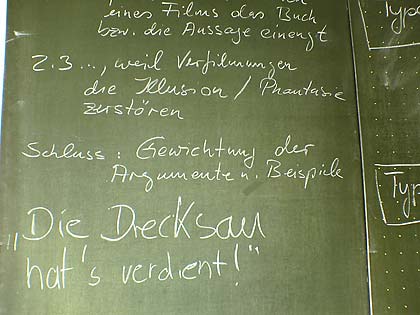 eines Films das Buch
bzw. die Aussage einengt
2.3 ..., weil Verfilmungen
die Illusion / Phantasie
zerstören
Schluss: Gewichtung der
Argumente u. Beispiele
„Die Drecksau
hat's verdient!"
Type
Typ